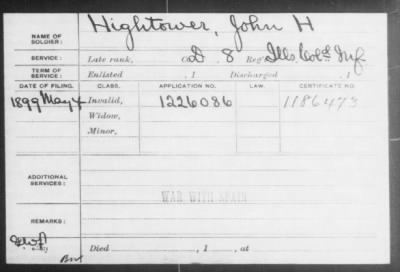 NAME OF SOLDIER: Hightower, John H
SERVICE: Late rank, Co. D, 8 Reg't Ills. Col'd Inf.
TERM OF SERVICE: Enlisted , 1 Discharged , 1
DATE OF FILING. CLASS. APPLICATION NO. LAW. CERTIFICATE NO.
1899 May 4 Invalid, 1226086 1186473
Widow,
Minor,
ADDITIONAL SERVICES: WAR WITH SPAIN
REMARKS:
Died , 1 , at